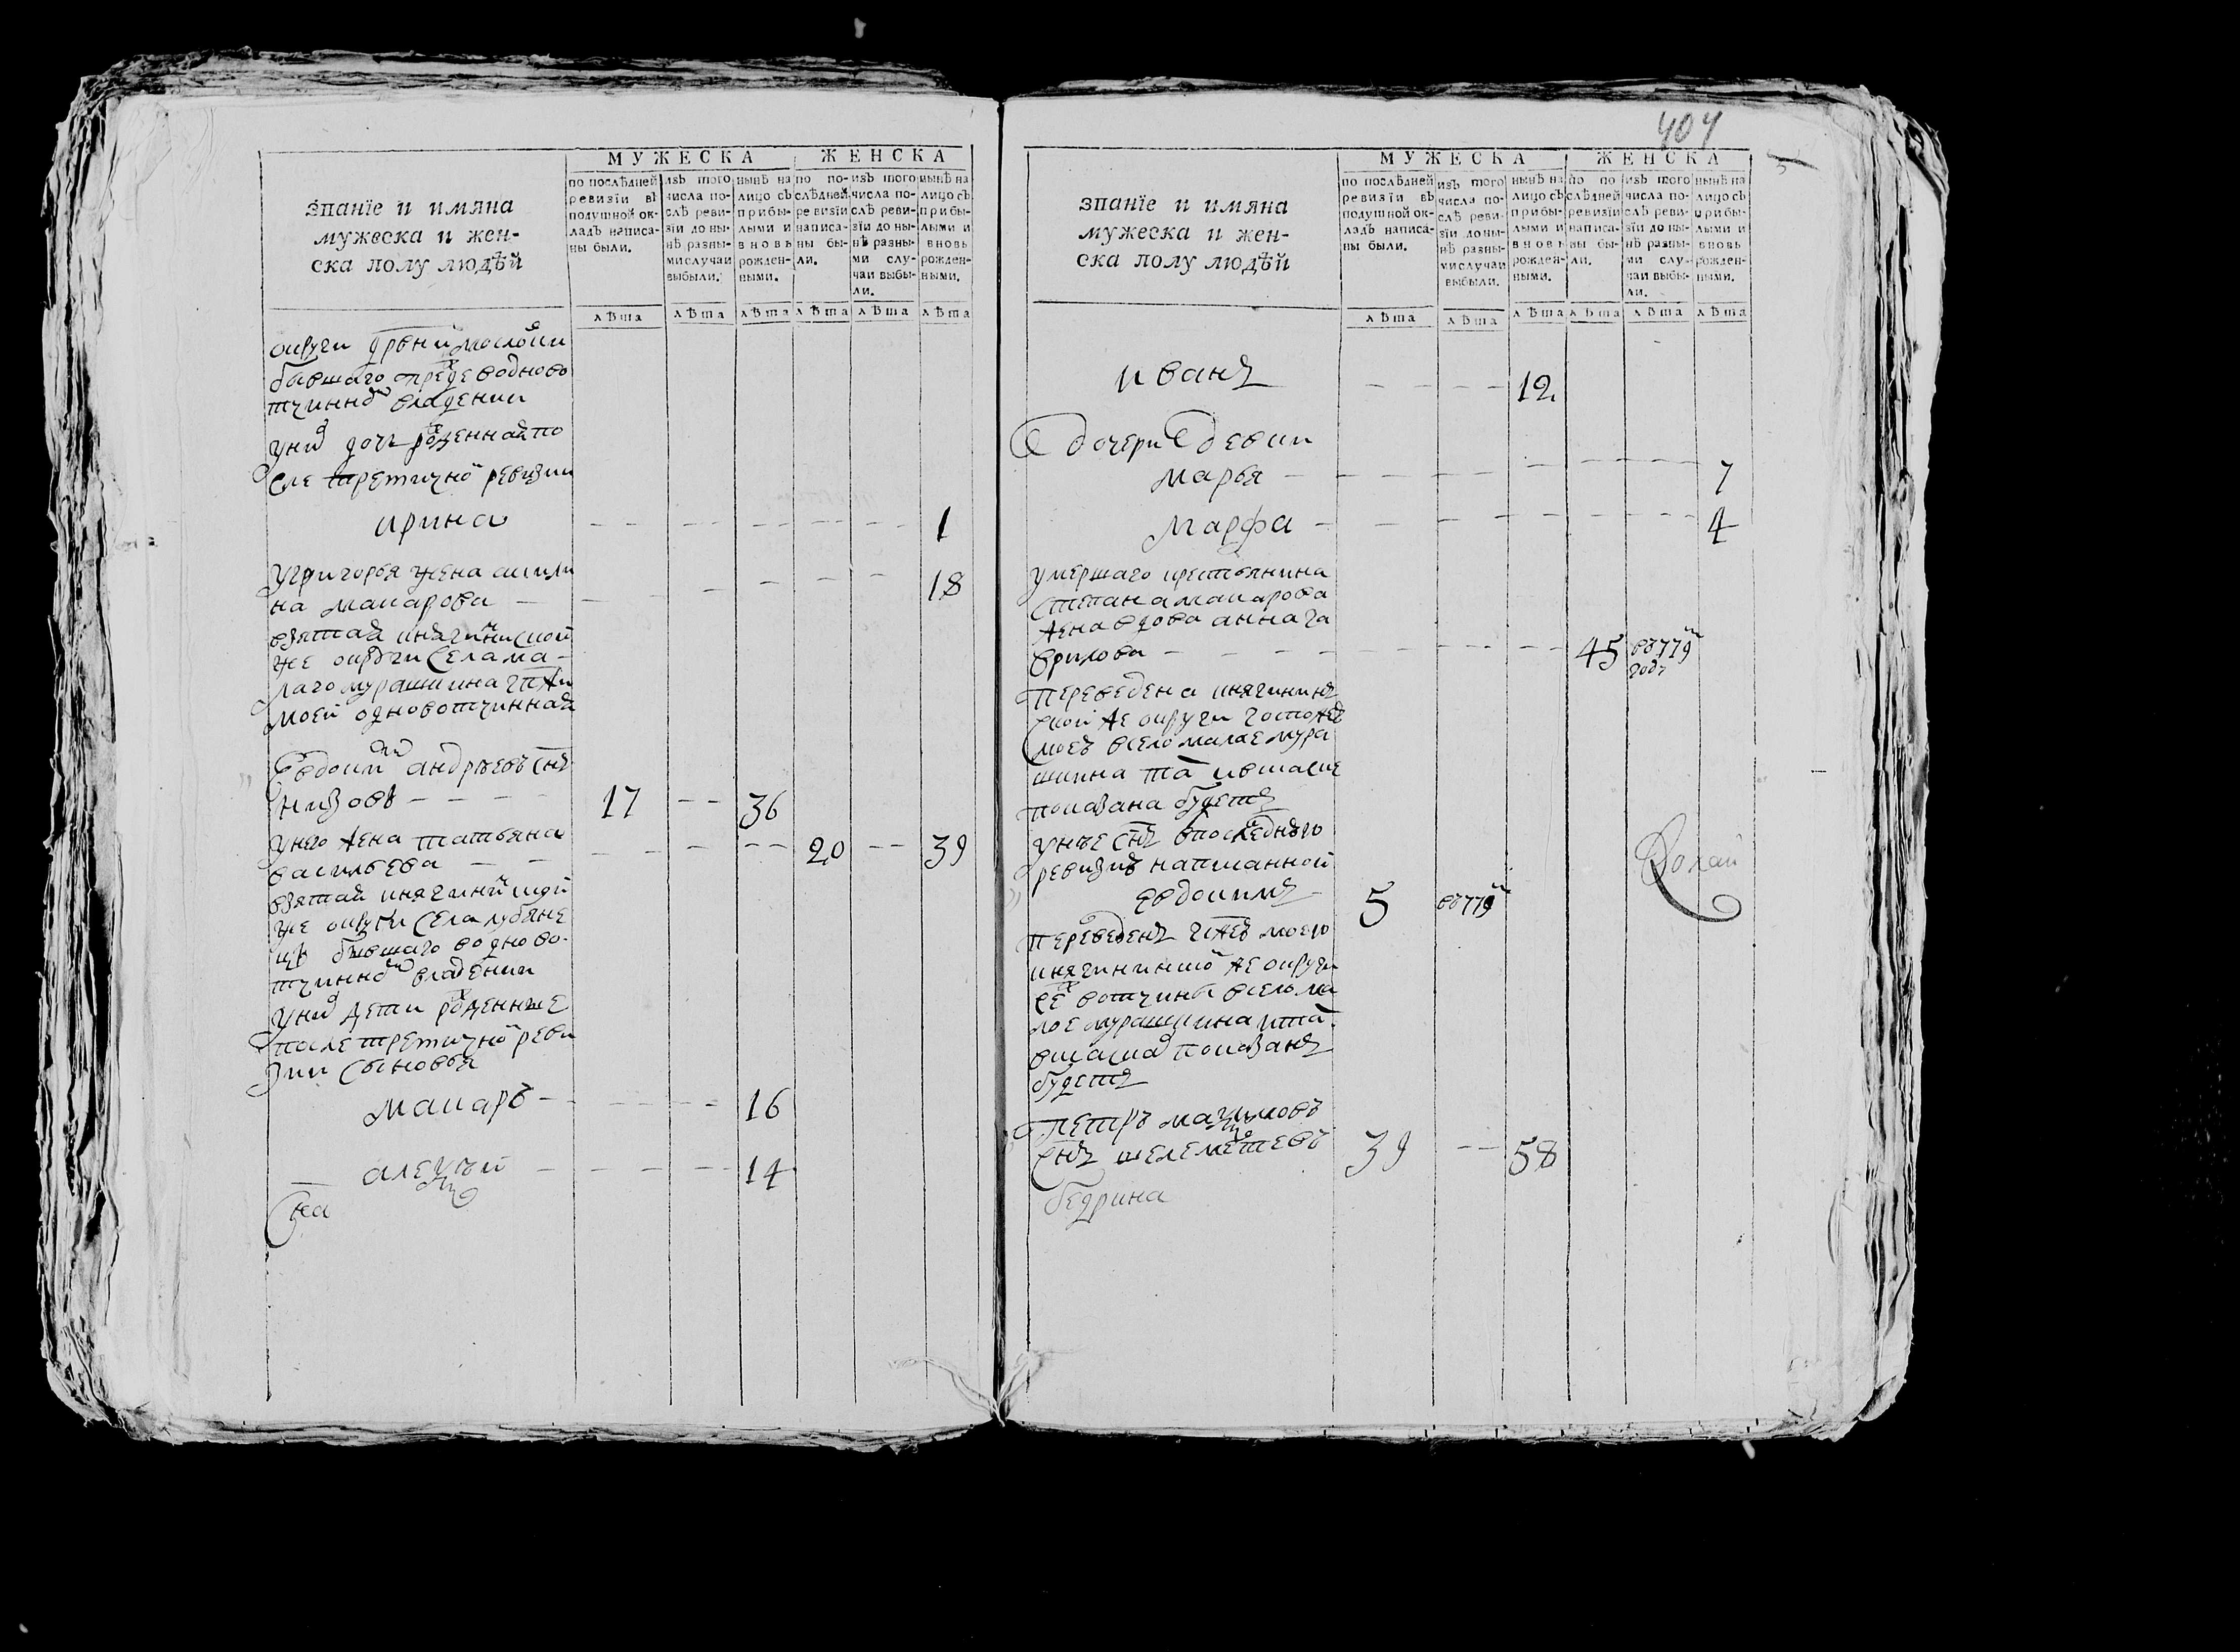 званїе и имяна
мужеска и жен-
ска полу людѣй
МУЖЕСКА
ЖЕНСКА
по послѣдней ревизїи въ подушной окладъ написаны были.
изъ того числа послѣ ревизїи до нынѣ разными случаи выбыли.
нынѣ на лицо съ прибылыми и вновь рожденными.
по послѣдней ревизїи написаны были.
изъ того числа послѣ ревизїи до нынѣ разными случаи выбыли.
нынѣ на лицо съ прибылыми и вновь рожденными.
лѣта лѣта лѣта лѣта лѣта лѣта
округи дрвни
бывшаго прежде водново
тчинно владении
у них дочь рожденная по
сле третичной ревизии
ирина - - - - - - 1
у григорья жена акили
на макарова - - - - - - 18
взятая княгининской
же округи села ма-
лаго мурашкина гпжи
моей одновотчинная
Евдоким андрѣевъ снъ
низовъ - - - 17 - - 36
у него жена татьяна
васильева - - - - - 20 - - 39
взятая княгининской
же округи села лубене
цъ бывшаго водново-
тчинно владении
у них дети рожденные
после третичной реви
зии сыновья
макаръ - - - - 16
алексѣй - - - - 14
404
званїе и имяна
мужеска и жен-
ска полу людѣй
МУЖЕСКА
ЖЕНСКА
по послѣдней ревизїи въ подушной окладъ написаны были.
изъ того числа послѣ ревизїи до нынѣ разными случаи выбыли.
нынѣ на лицо съ прибылыми и вновь рожденными.
по послѣдней ревизїи написаны были.
изъ того числа послѣ ревизїи до нынѣ разными случаи выбыли.
нынѣ на лицо съ прибылыми и вновь рожденными.
лѣта лѣта лѣта лѣта лѣта лѣта
иванъ - - - - 12
дочери девки
марья - - - - - - 7
марфа - - - - - - 4
умершаго крестьянина
степана макарова
жена вдова анна га
врилова - - - - - - 45 въ 779м годѣ
переведена княгинин
ской же округи госпожею
моею в село малае мура
шкина та и в сказке
показана будетъ
у нее снъ в последнюю
ревизию написанной
евдокимъ 5 въ 779м
переведенъ гпжею моею
княгининской же округи
ее вотчины в село ма
лое мурашкина и та
в сказке показанъ
будетъ
петръ максимовъ
снъ шелеметевъ 39 - - 58